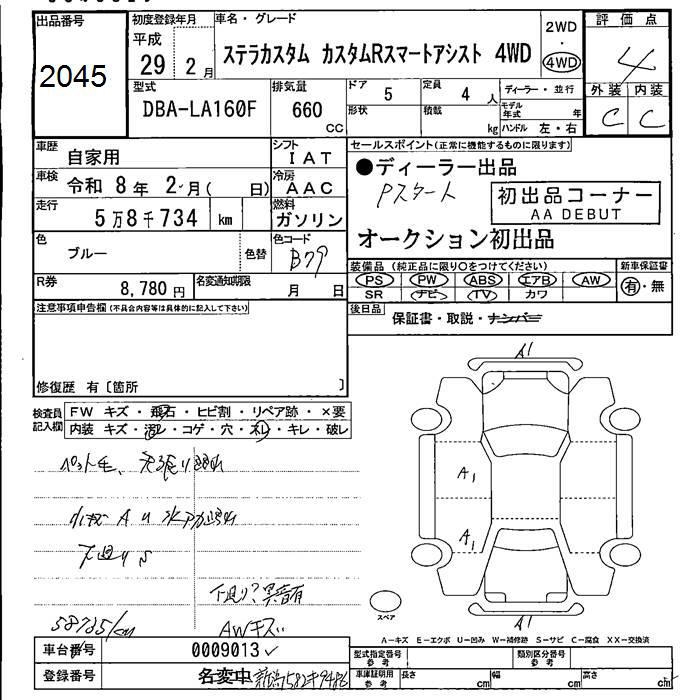 出品番号 初度登録年月 車名・グレード 2WD・4WD 評価点
2045 平成 29 2月 ステラカスタム カスタムRスマートアシスト 4WD 4
型式 排気量 ドア 5 定員 4人 ディーラー・並行 外装 内装
DBA-LA160F 660 CC 形状 積載 kg モデル年式 年 ハンドル 左・右 C C
車歴 自家用 シフト IAT セールスポイント(正常に機能するものに限ります)
車検 令和 8年 2月( 日) 冷房 AAC ●ディーラー出品
Pスタート 初出品コーナー
AA DEBUT
走行 5万8千734 km 燃料 ガソリン
オークション初出品
色 ブルー 色替 色コード B79
装備品(純正品に限り○をつけてください) 新車保証書
PS PW ABS エアB AW 有・無
SR ナビ TV カワ
R券 8,780円 名変通知期限 月 日
注意事項申告欄(不具合内容等は具体的に記入して下さい) 後日品 保証書・取説・ナンバー
修復歴 有〔箇所 〕
検査員記入欄 FW キズ・飛石・ヒビ割・リペア跡・×要
内装 キズ・汚レ・コゲ・穴・スレ・キレ・破レ
A1
A1
A1
A1
ペット毛、
下廻りS
下廻り?異音有
58735km AWキズ
スペア
A-キズ E-エクボ U-凹み W-補修跡 S-サビ C-腐食 XX-交換済
車台番号 0009013 型式指定番号 参考 類別区分番号 参考
登録番号 名変中 新潟582 9486 車庫証明用 参考 長さ cm 幅 cm 高さ cm